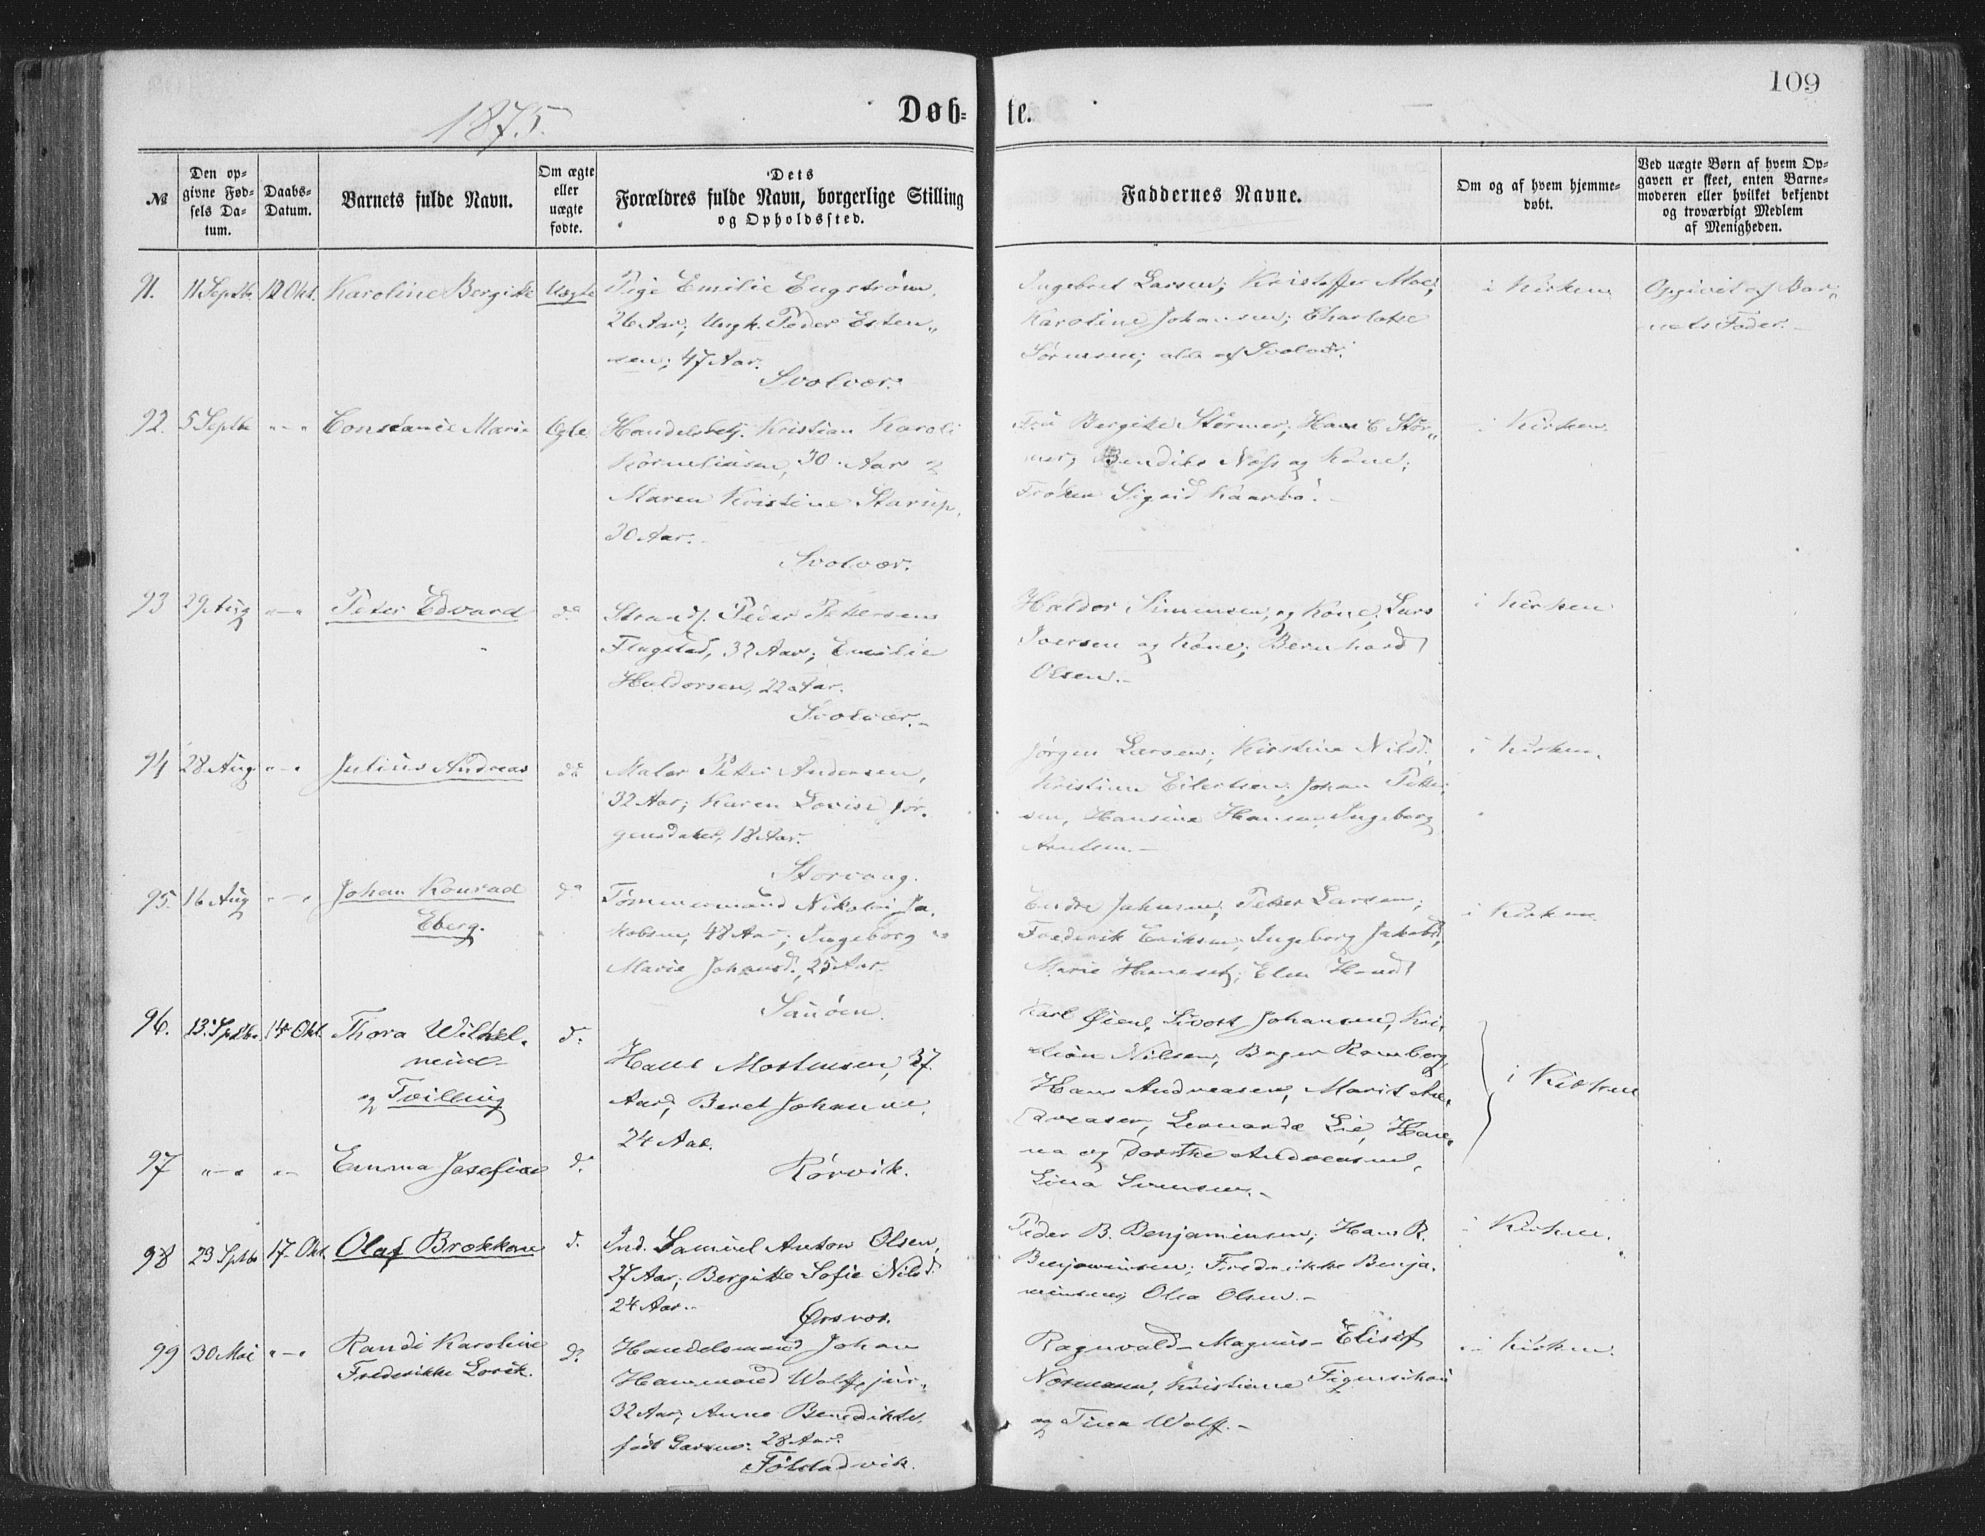 109
1875.
Døb-
te.
№
Den op-
givne Fød-
sels Da-
tum.
Daabs-
Datum.
Barnets fulde Navn.
Om ægte
eller
uægte
fødte.
Dets
Forældres fulde Navn, borgerlige Stilling
og Opholdssted.
Faddernes Navne.
Om og af hvem hjemme-
døbt.
Ved uægte Børn af hvem Op-
gaven er skeet, enten Barne-
moderen eller hvilket bekjendt
og troværdigt Medlem
af Menigheden.
91. 11 Septb. 12 Okt. Karoline Bergitte Uægte
Pige Emilie Engstrøm,
26 Aar; Ungk. Peder Esten„
sen; 47 Aar.
Svolvær.
Ingebret Larsen; Kristoffer Moe;
Karoline Johansen; Charlotte
Sørensen; alle af Svolvær.
i Kirken
Opgivet af Bar„
nets Fader.
92. 5 Septb „—„ Constance Marie Egte
Handelsbetj. Kristian Karoli
Korneliusen, 30 Aar &
Maren Kristine Starup,
30 Aar.
Svolvær.
Fru Bergitte Størmer; Hans C Stør„
mer; Bendiks Noss og Kone;
Frøken Sigrid Kaarbø.
i Kirken.
93 29 Aug „—„ Peter Edvard do
Strands. Peder Petersen
Flagstad, 32 Aar; Emilie
Haldorsen, 22 Aar.
Svolvær.
Haldor Simensen og Kone; Lars
Iversen og Kone; Bernhard
Olsen.
i Kirken
94 28 Aug „—„ Julius Andreas do
Maler Peter Andersen,
32 Aar; Karen Lovise Jør-
gensdatter, 18 Aar.
Storvaag.
Jørgen Larsen; Kirstine Nilsd.
Kristine Eilertsen; Johan Petter
sen, Hansine Hansen, Ingeborg
Arntsen.
i Kirken.
95. 16 Aug „—„ Johan Konrad do
Eberg.
Tømmermand Nikolai Ja-
kobsen, 48 Aar; Ingeborg
Marie Johansd., 25 Aar.
Sauøen.
Endre Johnsen; Peter Larsen;
Frederik Eriksen; Ingeborg Jakobd;
Marie Hansen; Elen
i Kirken
96. 13. Septb. 14 Okt. Thora Wilhel- d.
mine
og Tvilling
Hans Mortensen, 37
Aar; Beret Johanne,
24 Aar.
Rørvik.
Karl Øien, Sivert Johansen, Kri-
stian Nilsen, Birger Romberg,
Hans Andreasen, Marit An-
dreasen, Leonarda Lie, Han-
na og Dorthe Andreasen,
Lina Svensen.
i Kirken
97 „—„ „— Emma Josefine d.
98 23 Septb 17. Okt. Olaf Brokkan d.
Ind. Samuel Anton Olsen,
27 Aar; Bergitte Sofie Nilsd.
24 Aar.
Ørsvos.
Peder B. Benjaminsen; Hans R.
Benjaminsen; Fredrikke Benja-
minsen; Olea Olsen.
i Kirken.
99 30 Mai „—„ Randi Karoline do
Frederikke Lorck.
Handelsmand Johan
Hammond Wolff, jur.
32 Aar; Anne Benedikte
født Larsen. 28 Aar.
Følstadvik.
Ragnvald Magnus Elisef
Normann, Kristiane Figenschou
og Tina Wolff.
i Kirken.